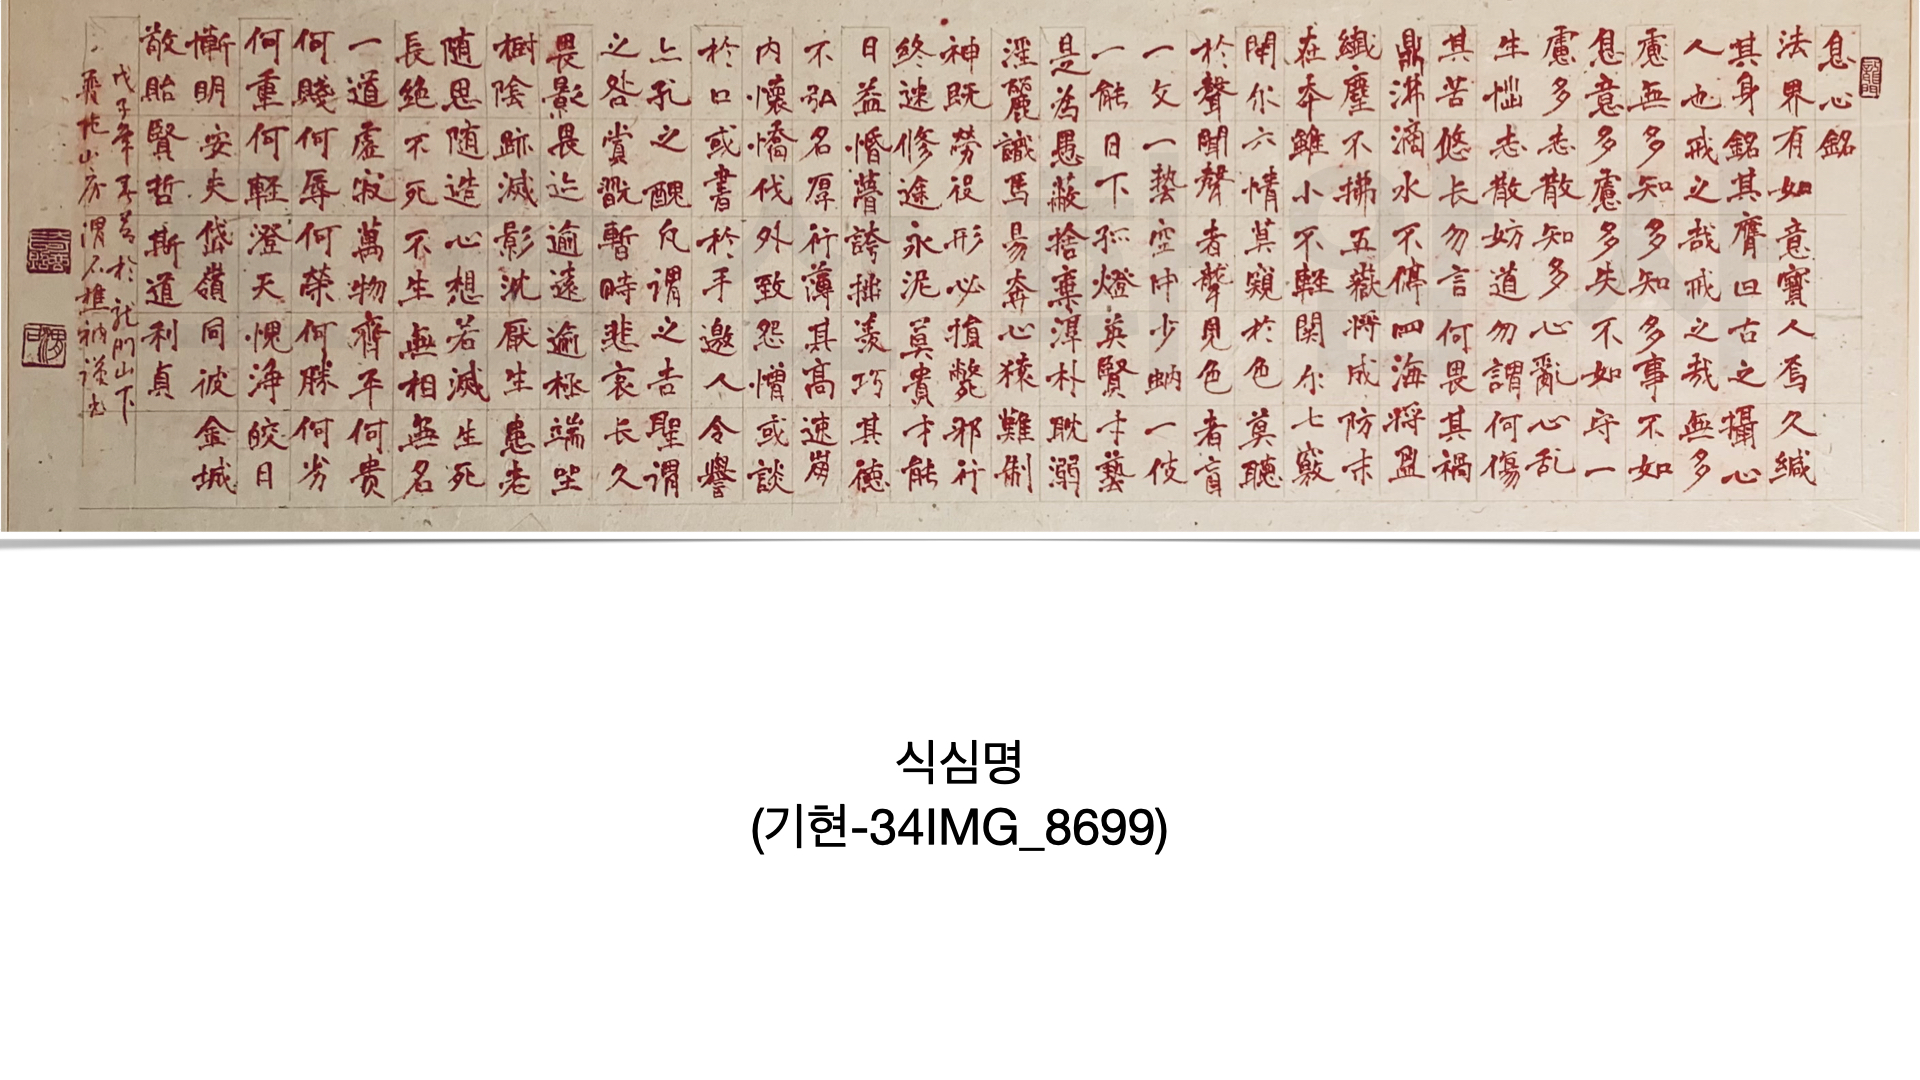 息心銘
法界有如意寶人焉久緘
其身銘其膺曰古之攝心
人也戒之哉戒之哉無多
慮無多知多知多事不如
息意多慮多失不如守一
慮多志散知多心亂心乱
生惱志散妨道勿謂何傷
其苦悠长勿言何畏其禍
鼎沸滴水不停四海将盈
纖塵不拂五嶽将成防末
在本雖小不軽関尓七竅
閉尓六情莫窺於色莫聽
於聲聞聲者聾見色者盲
一文一藝空中少蚋一伎
一能日下孤燈英賢才藝
是為愚蔽捨棄淳朴耽溺
淫麗識馬易奔心猿難制
神既勞役形必損斃邪行
終迷修途永泥莫貴才能
日益惛瞢誇拙羡巧其徳
不弘名厚行薄其高速崩
内懷憍伐外致怨憎或談
於口或書於手邀人令譽
亦孔之醜凡謂之吉聖谓
之咎賞翫暫時悲哀长久
畏影畏迹逾遠逾極端坐
樹陰跡滅影沈厭生患老
随思随造心想若滅生死
長絶不死不生無相無名
一道虛寂萬物齊平何贵
何賤何辱何榮何勝何劣
何重何軽澄天愧淨皎日
慚明安夫岱嶺同彼金城
敬貽賢哲斯道利貞
戊子年 於龍門山下
山房
식심명
(기현-34IMG_8699)